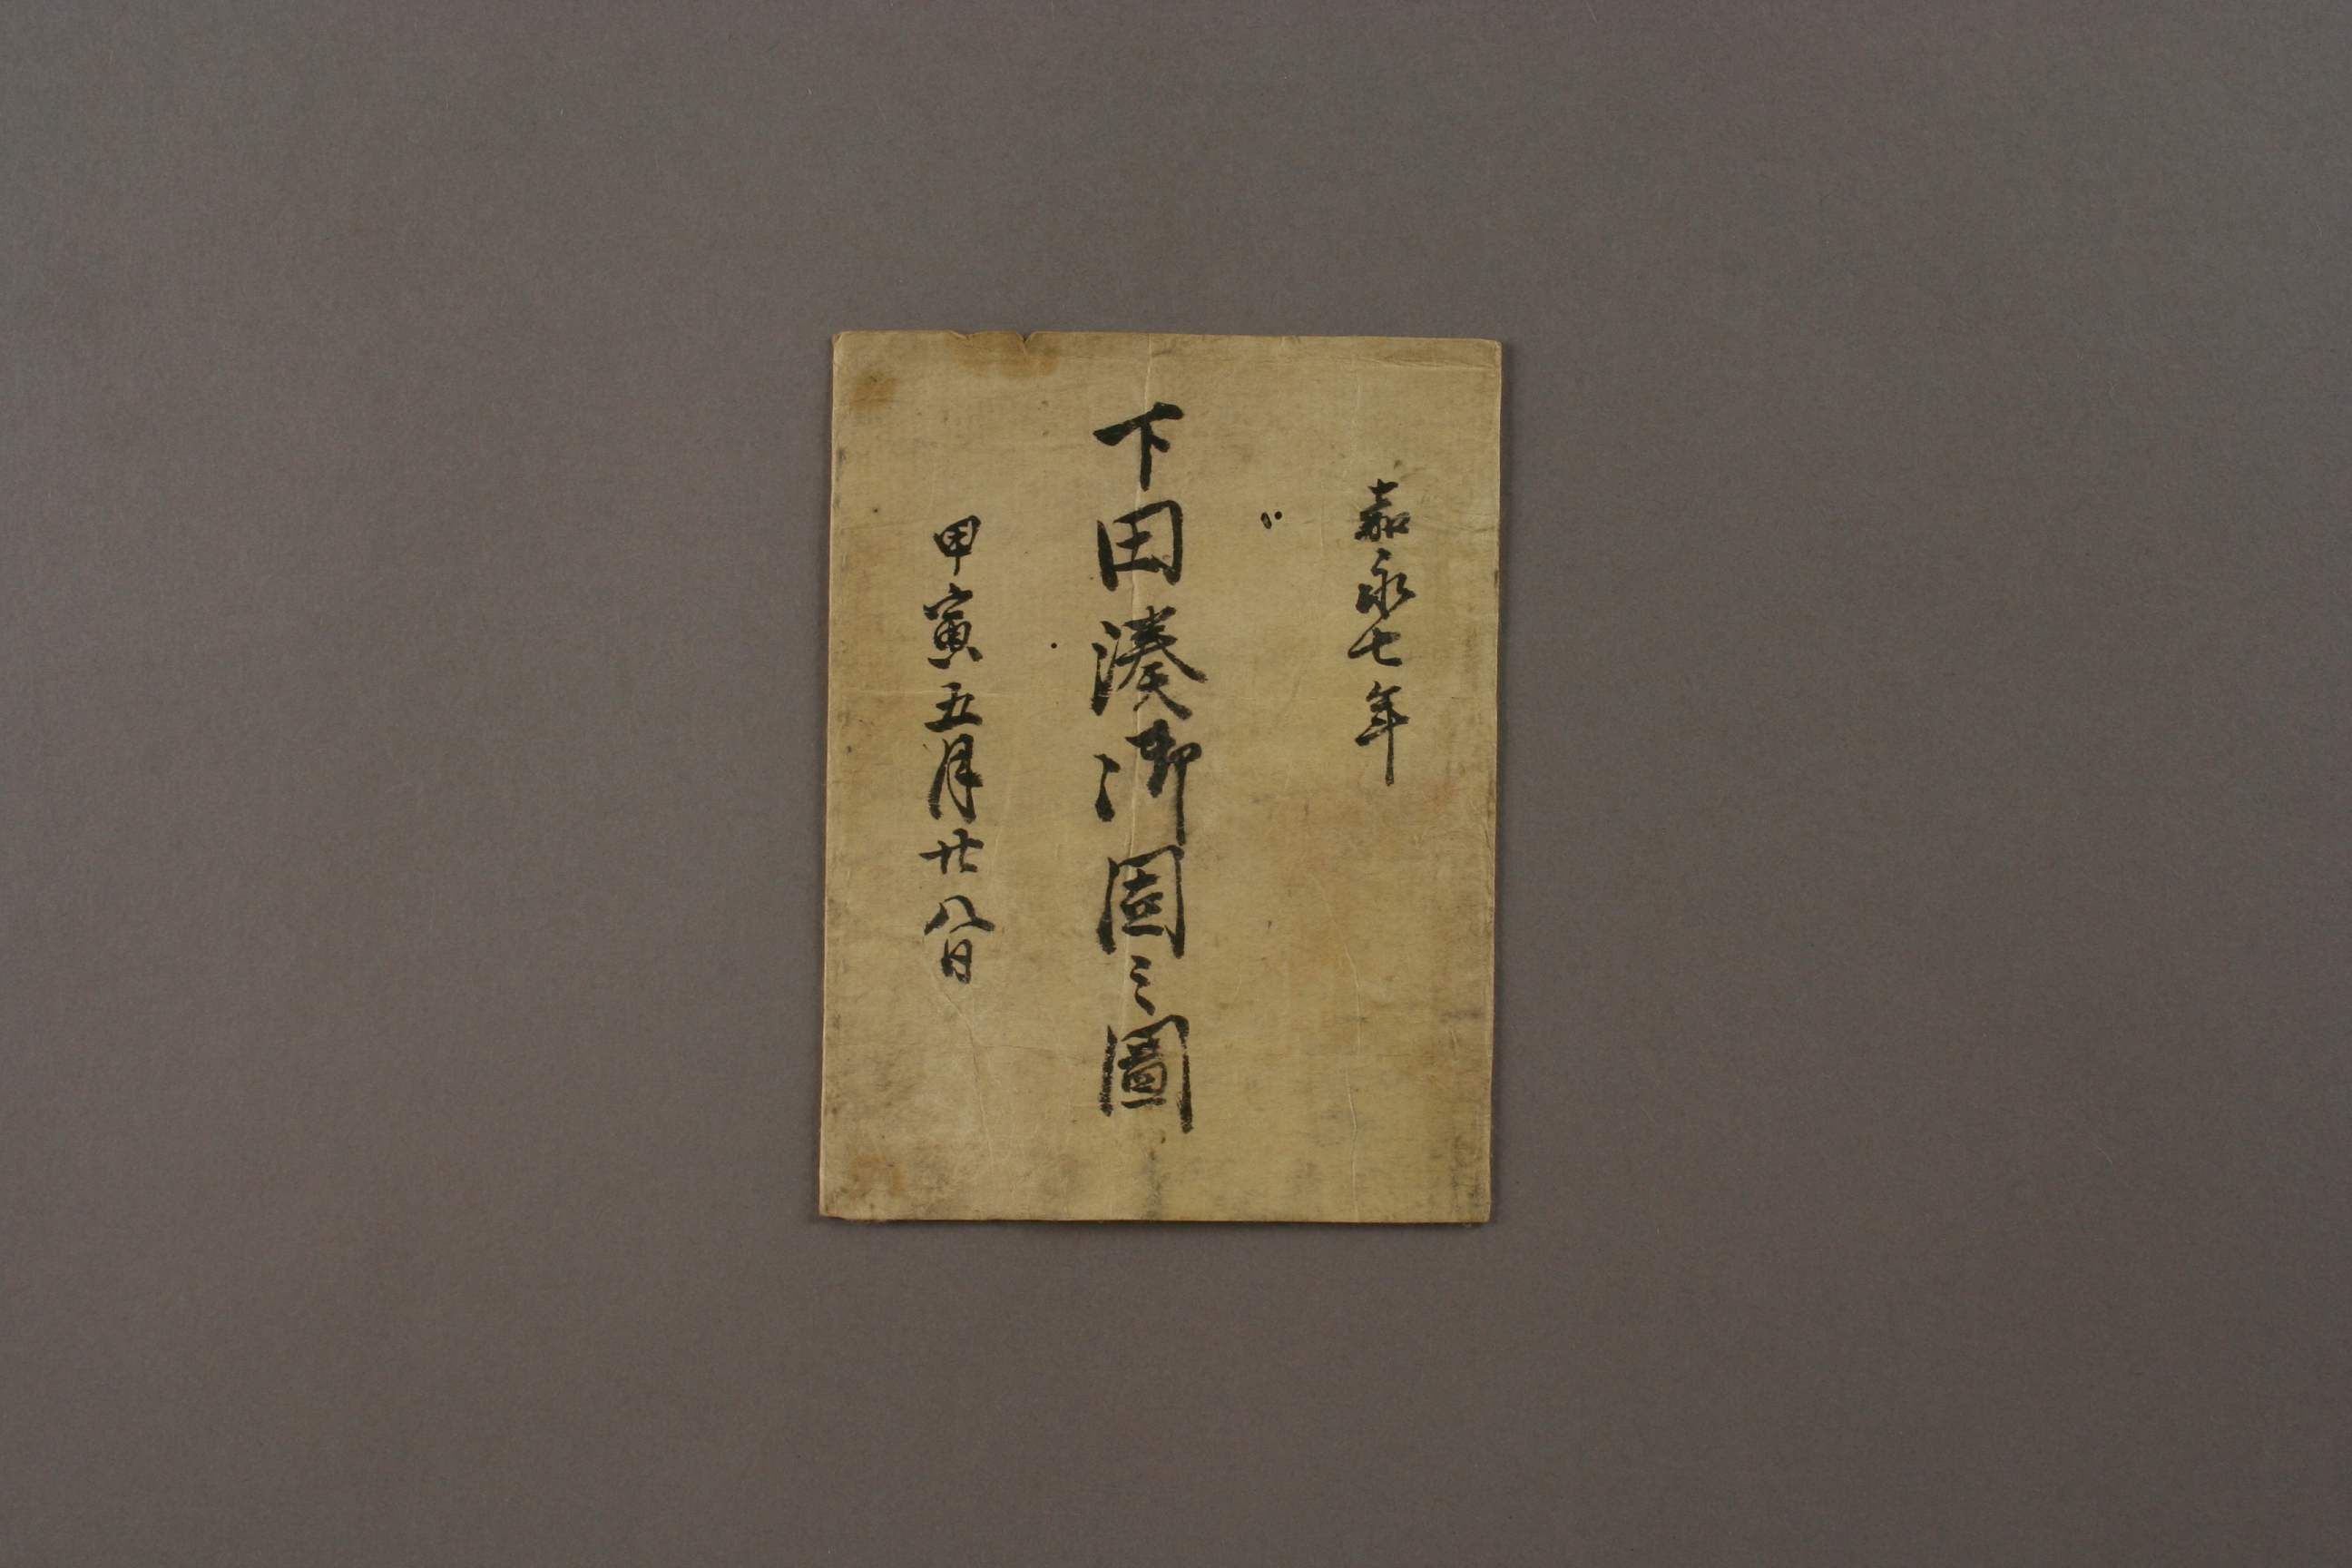 嘉永七年
下田湊御固之圖
甲寅五月廿八日